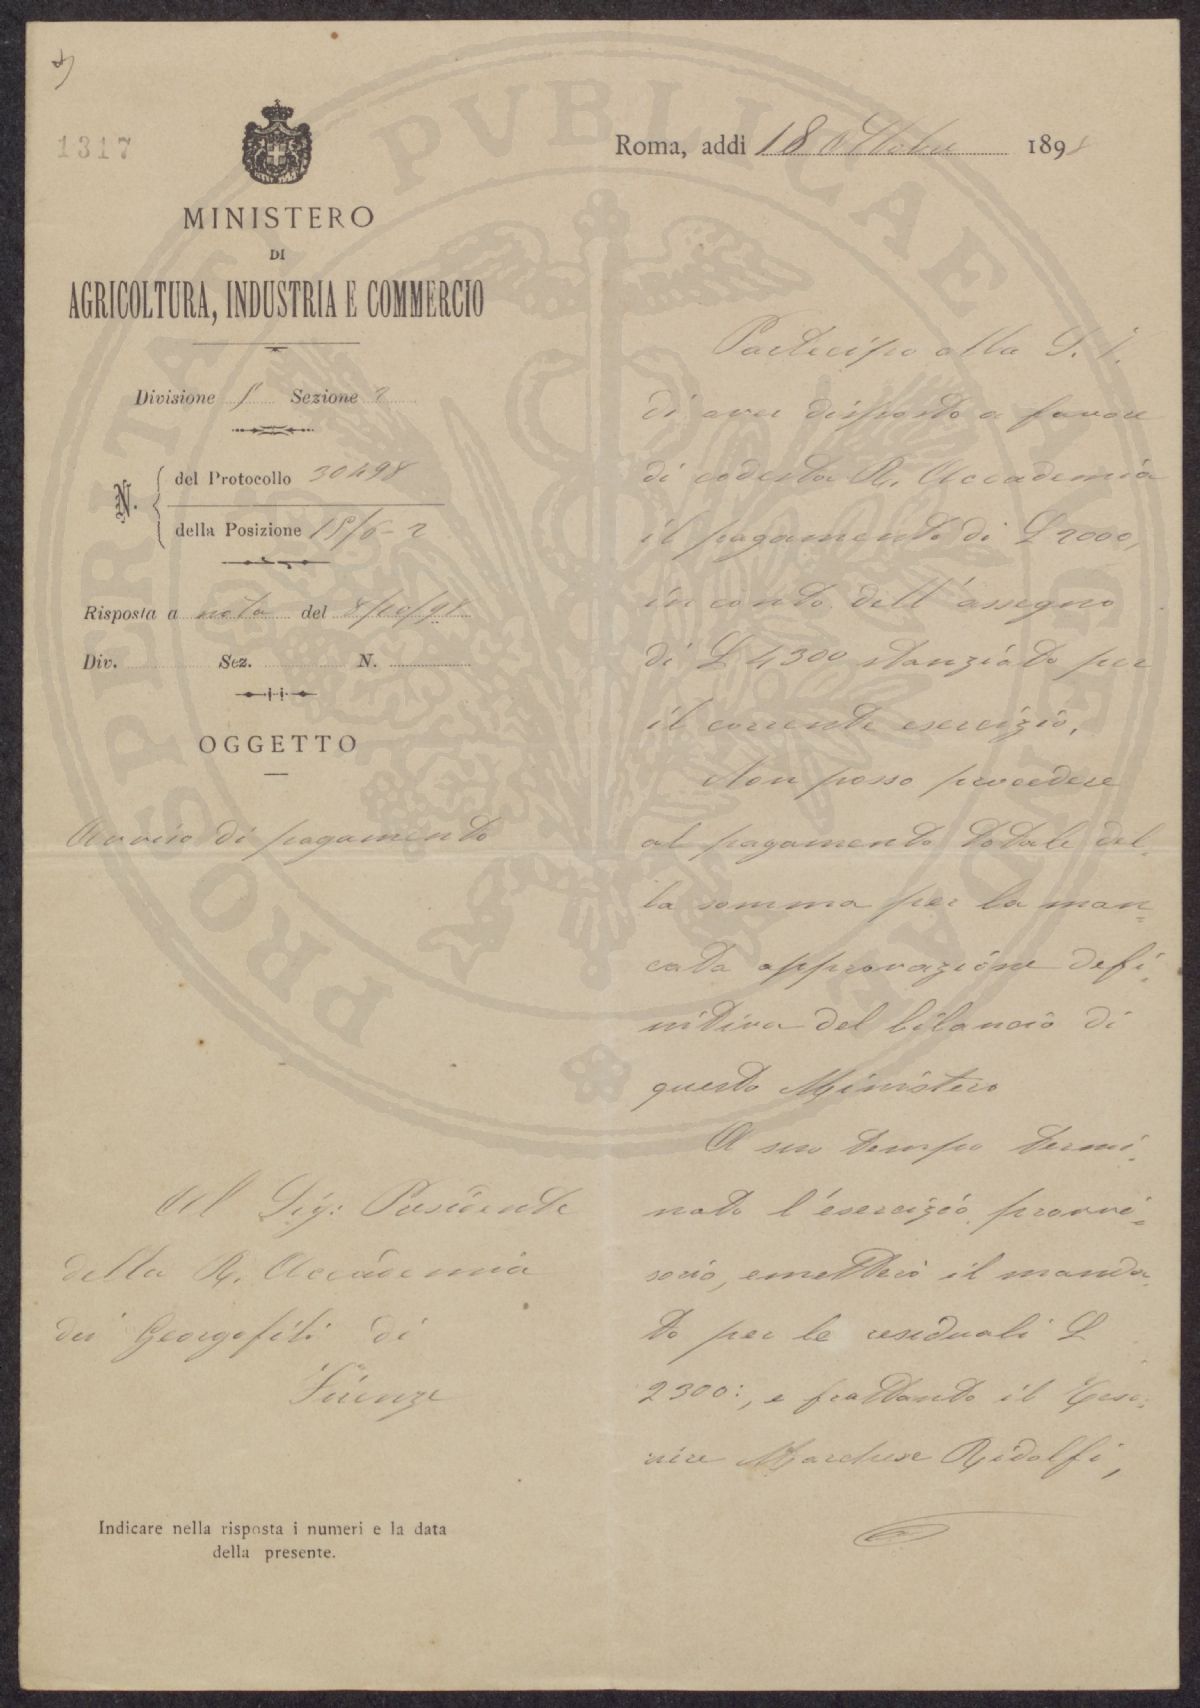 1317
MINISTERO
DI
AGRICOLTURA, INDUSTRIA E COMMERCIO
Divisione 1ª Sezione 2
N. del Protocollo 30498
della Posizione 15/6-2
Risposta a nota del 8/10/98
Div. Sez. N.
OGGETTO
Avviso di pagamento
Al Sig: Presidente
della R. Accademia
dei Georgofili di
Firenze
Indicare nella risposta i numeri e la data
della presente.
Roma, addì 18 Ottobre 1898
Partecipo alla S. V.
di aver disposto a favore
di codesta R. Accademia
il pagamento di £ 2000,
in conto dell'assegno
di £ 4300 stanziato per
il corrente esercizio.
Non posso procedere
al pagamento totale del-
la somma per la man-
cata approvazione defi-
nitiva del bilancio di
questo Ministero
A suo tempo termi-
nato l'esercizio provvi-
sorio, emetterò il manda-
to per le residuali £
2300:, e frattanto il
Marchese Ridolfi,
PROSPERITAS PVBLICAE AVGENDAE